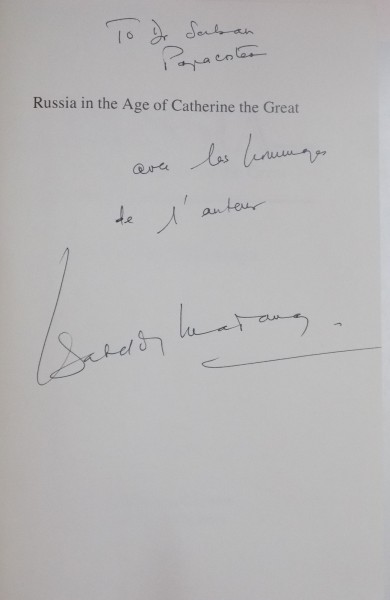 To Dr Serban
Papacostea
Russia in the Age of Catherine the Great
avec les hommages
de l'auteur
Isabel de Madariaga